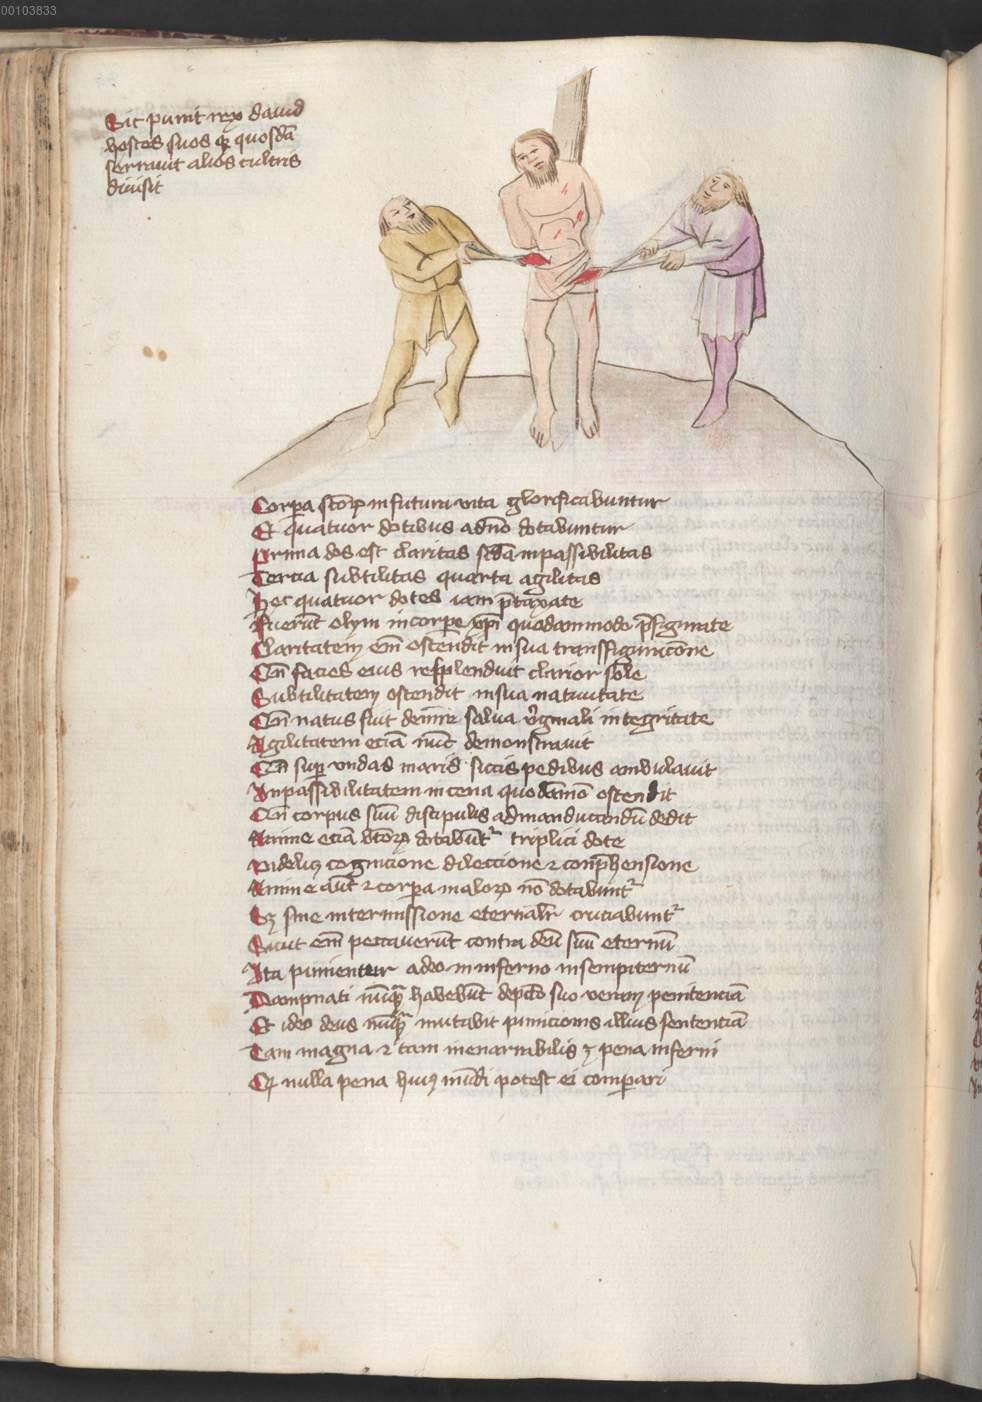 00103833
Sic punit rex dauid
hostes suos q quosdā
serrauit alios cultris
diuisit
Corpa sctōꝝ in futura vita glorificabuntur
Et quatuor dotibus adn̄o dotabuntur
Prima dos est claritas scd̄a inpassibilitas
Tercia subtilitas quarta agilitas
Hec quatuor dotes iam p̄taxate
Fuerūt olym in corpe xp̄i quodammodo p̄figurate
Claritatem em̄ ostendit in sua transfiguracōne
Cū facies eius resplenduit clarior sole
Subtilitatem ostendit in sua natiuitate
Cū natus fuit de v̄gine salua v̄ginali integritate
Agilitatem eciā tūc demonstrauit
Cū sup vndas maris siccis pedibus ambulauit
Inpassibilitatem in cena quodāmō ostendit
Cū corpus suū discipulis ad manducandū dedit
Anime eciā btōrꝝ dotabūt᷑ triplici dote
Videlicꝫ cognicione dileccione ⁊ conp̄hensione
Anime aūt ⁊ corpa maloꝝ nō dotabunt᷑
Sꝫ sine intermissione eternalr̄ cruciabunt᷑
Sicut em̄ peccauerūt contra deū suū eternū
Ita punientur adeo in inferno in sempiternū
Dampnati nūq̄ꝫ habebūt de pctō suo veram penitenciā
Et ideo deus nūq̄ꝫ mutabit punicionis illius sentenciā
Tam magna ⁊ tam inenarrabilis ꝫ pena inferni
Q nulla pena huiꝰ mūdi potest ei compari